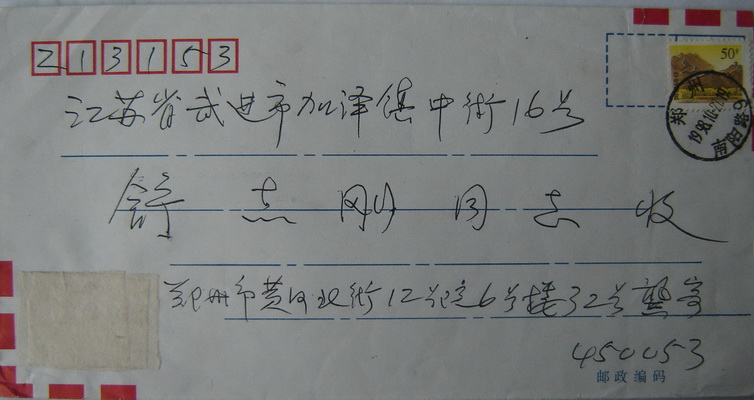 213153
50分
江苏省武进市加泽镇中街16号
郑州
1998.10.21.19
南阳路6
舒志刚同志收
郑州市黄河北街12号院6号楼32号龚寄
450053
邮政编码